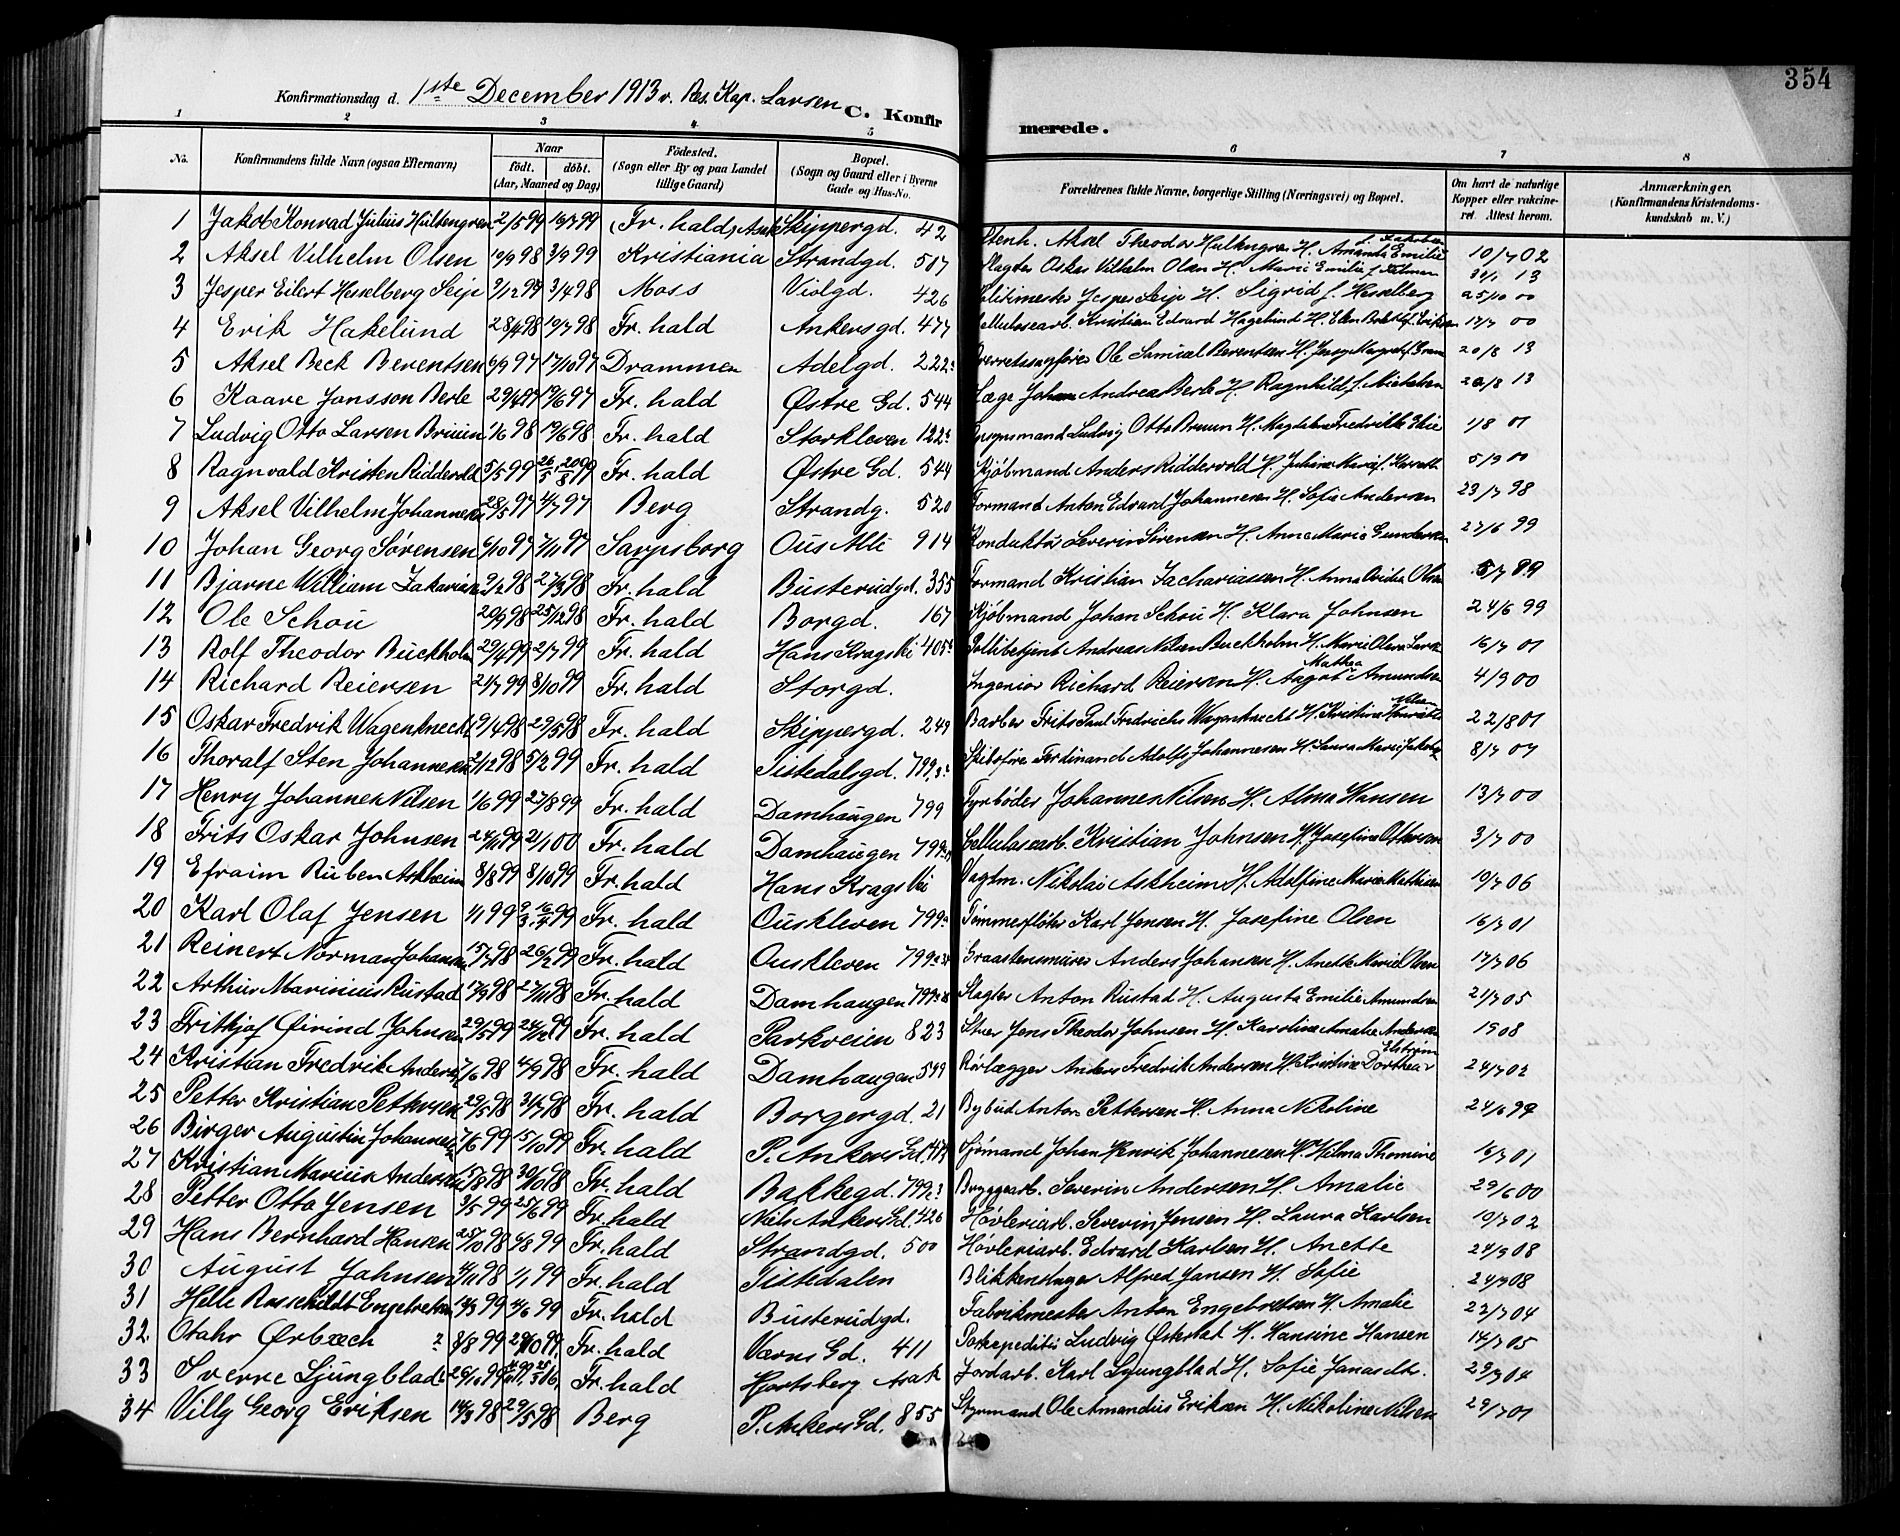 354
Konfirmationsdag d. 1ste December 1913 v. Res. Kap. Larsen
C. Konfirmerede.
1 2 3 4 5 6 7 8
No. Konfirmandens fulde Navn (ogsaa Efternavn) Naar födt. döbt. (Aar, Maaned og Dag) Födested. (Sogn eller By og paa Landet tillige Gaard) Bopæl. (Sogn og Gaard eller i Byerne Gade og Hus-No. Forældrenes fulde Navne, borgerlige Stilling (Næringsvei) og Bopæl. Om havt de naturlige Kopper eller vakcineret. Attest herom. Anmærkninger. (Konfirmandens Kristendomskundskab m. V.)
1 Jakob Konrad Julius Hultengren 2/5 99 16/7 99 Fr.hald, Skippergd. 42 Aksel Theodor H. Amanda Emilie 10/7 02
2 Aksel Vilhelm Olsen 3/9 99 Kristiania Strandgd. 517 Slagter Oskar Vilhelm Olsen H. Marie Emilie 13
3 Jesper Eilert Hesselberg Seip 3/4 98 Moss Violgd. 426 Jesper Seip H. Sigrid f. Hesselberg 25/10 00
4 Erik Hakelund 28/4 98 19/7 98 Fr.hald Ankersgd. 477 Cellulosearb. Kristian Edvard Hagelund H. Elen 17/7 00
5 Aksel Beck Berentsen 6/9 97 17/10 97 Drammen Adelgd. 222 Ole Samual Berentsen H. Jenny Margret f. 20/8 13
6 Kaare Jonsson Berle 29/4 97 19/6 97 Fr.hald Østre Gd. 544 Læge Johan Andrea Berle H. Ragnhild f. Nielsen 20/8 13
7 Ludvig Otto Larsen Bruun 1/6 98 19/6 98 Fr.hald Storkleven 122 Ludvig Otto Bruun H. Magdalen Fredrikke 1/8 01
8 Ragnvald Kristen Riddervold 5/5 99 Fr.hald Østre Gd. 544 Kjøbmand Anders Riddervold H. Juliane Marie f. 5/9 00
9 Aksel Vilhelm Johannesen 28/5 97 4/7 97 Berg Strandg. 520 Formand Anton Edvard Johannesen H. Sofie Andersen 23/7 98
10 Johan Georg Sørensen 6/10 97 7/11 97 Sarpsborg Ous Alle 914 Konduktør Severin Sørensen H. Anne Marie Gundersen 27/6 99
11 Bjarne William Zakariassen 9/2 98 27/3 98 Fr.hald Busterudgd. 355 Formand Kristian Zachariassen H. Anna Olsen 5/7 89
12 Ole Schou 20/9 98 25/12 98 Fr.hald Borgd. 167 Kjøbmand Johan Schou H. Klara Johnsen 24/6 99
13 Rolf Theodor Buckholm 29/4 99 2/7 99 Fr.hald Hans Krags Vei 405 Politibetjent Andreas Nilsen Buckholm H. Marie Olava 16/7 01
14 Richard Reiersen 21/7 99 8/10 99 Fr.hald Storgd. Ingeniør Richard Reiersen H. Aagot Mathea Amundsen 4/9 00
15 Oskar Fredrik Wagenknecht 19/4 98 29/5 98 Fr.hald Skippergd. 249 Barber Frits Paul Fredrichs Wagenknecht H. Kristine 22/8 01
16 Thoralf Sten Johannesen 2/12 98 5/2 99 Fr.hald Tistedalsgd. 799 Skibsfører Ferdinand Adolf Johannesen H. Laura Marie 8/7 07
17 Henry Johannes Nilsen 1/6 99 27/8 99 Fr.hald Damhaugen 799 Fyrbøder Johannes Nilsen H. Alma Hansen 13/7 00
18 Frits Oskar Johnsen 24/11 99 2/1 00 Fr.hald Damhaugen 799 Cellulosearb. Kristian Johnsen H. Josefine Ottersen 3/7 00
19 Efraim Ruben Askheim 8/8 99 8/10 99 Fr.hald Hans Krags Vei Vagtm. Nikolai Askheim H. Adolfine Marie Mathisen 19/7 06
20 Karl Olaf Jensen 1/1 99 Fr.hald Ouskleven 799 Tømmerfløter Karl Jensen H. Josefine Olsen 16/7 01
21 Reinert Norman Johansen 15/7 98 26/2 99 Fr.hald Ouskleven 799 Graastensmurer Anders Johansen H. Anette Marie Olsen 17/7 06
22 Arthur Marinius Rustad 17/9 98 27/11 98 Fr.hald Damhaugen 799 Slagter Anton Rustad H. Augusta Emilie Amundsen 21/7 05
23 Fritkjof Øivind Johnsen 29/5 99 24/12 99 Fr.hald Parkveien 823 Stuer Jens Theodor Johnsen H. Karoline Amalie Andersen 1908
24 Kristian Fredrik Andersen 7/6 98 4/9 98 Fr.hald Damhaugen 599 Rørlægger Anders Fredrik Andersen H. Kristine Dorthea Elstrøm 24/7 02
25 Petter Kristian Pettersen 29/5 98 31/7 98 Fr.hald Borgergd. 21 Bybud Anton Pettersen H. Anna Nikoline 24/6 99
26 Birger Augustin Johannesen 7/6 99 15/10 99 Fr.hald P. Ankers Gd. 474 Sjømand Johan Henrik Johannesen H. Hilma Thomine 16/7 01
27 Kristian Marius Andersen 15/8 98 30/10 98 Fr.hald Bakkegd. 799 Bryggearb. Severin Andersen H. Amalie 29/6 00
28 Petter Otto Jensen 3/5 99 25/6 99 Fr.hald Niels Ankers Gd. 426 Høvleriarb. Severin Jensen H. Laura Karlsen 19/7 02
29 Hans Bernhard Hansen 25/10 98 6/8 99 Fr.hald Strandgd. 500 Høvleriarb. Edvard Karlsen H. Anette 24/9 08
30 August Johnsen 4/11 98 1/1 99 Fr.hald Tistedalen Blikkenslager Alfred Jansen H. Sofie 24/9 08
31 Helle Roschildt Engebretsen 14/3 99 4/6 99 Fr.hald Busterudgd. Fabrikmester Anton Engebretsen H. Amalie 22/7 04
32 Otahr Ørbæch 8/8 99 29/10 99 Fr.hald Værns Gd. 411 Postexpeditør Ludvig H. Hansine Hansen 14/7 05
33 Sverre Ljungblad 26/10 99 Fr.hald Hjortsberg Asak Jordarb. Karl Ljungblad H. Sofie 29/9 04
34 Villy Georg Eriksen 14/3 98 29/5 98 Berg P. Ankers Gd. 855 Styrmand Ole Amandus Eriksen H. Nikoline Nilsen 29/7 01